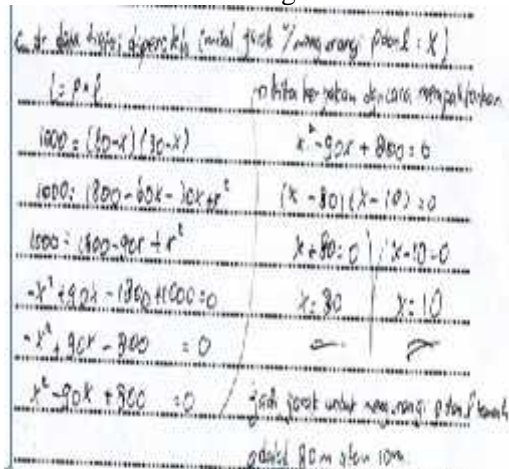 c. dr. data tersebut diperoleh (misal jarak % mengurangi p dan l : X)
L = p × l
1000 = (60-x)(30-x)
1000 = 1800-60x-30x+x²
1000 = 1800-90x+x²
-x²+90x-1800+1000=0
-x²+90x-800 = 0
x²-90x+800 = 0
kita kerjakan dg cara memfaktorkan
x²-90x+800=0
(x-80)(x-10)=0
x+80=0 / x-10=0
x=80 x=10
jadi jarak untuk mengurangi p dan l tanah
adalah 80m atau 10m.